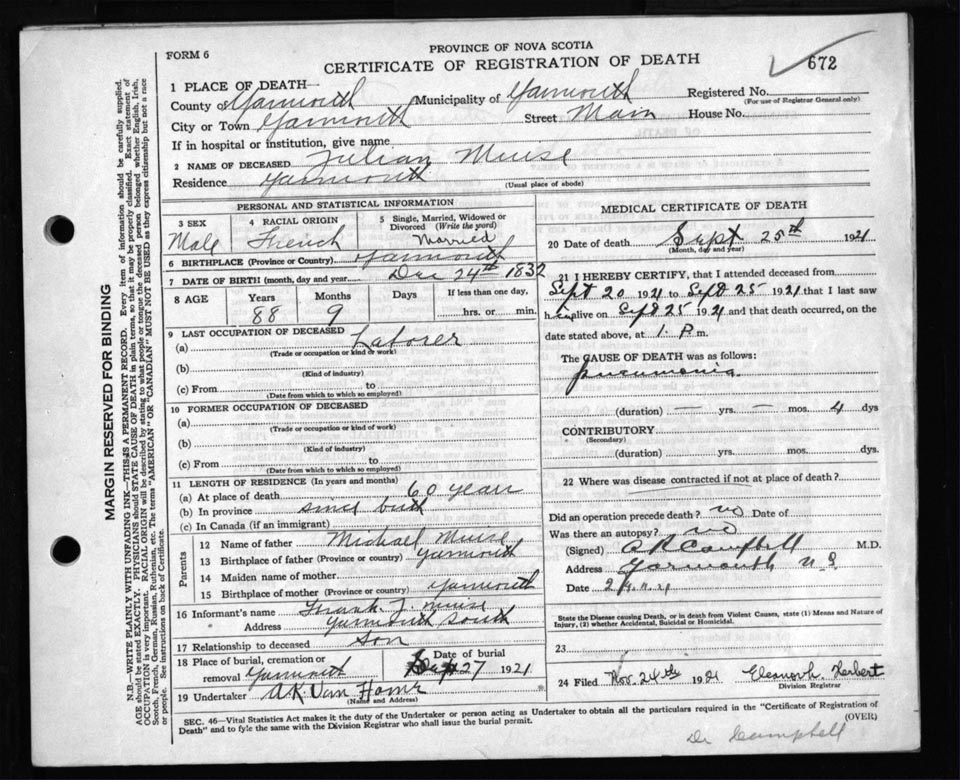 PROVINCE OF NOVA SCOTIA
FORM 6
CERTIFICATE OF REGISTRATION OF DEATH
672
1 PLACE OF DEATH—
County of Yarmouth Municipality of Yarmouth Registered No.
(For use of Registrar General only)
City or Town Yarmouth Street Main House No.
If in hospital or institution, give name
2 NAME OF DECEASED Julian Muise
Residence Yarmouth
(Usual place of abode)
PERSONAL AND STATISTICAL INFORMATION
3 SEX
Male
4 RACIAL ORIGIN
French
5 Single, Married, Widowed or
Divorced (Write the word)
Married
6 BIRTHPLACE (Province or Country) Yarmouth
7 DATE OF BIRTH (month, day and year) Dec 24th 1832
8 AGE
Years
88
Months
9
Days
If less than one day.
hrs. or min.
9 LAST OCCUPATION OF DECEASED
(a) Laborer
(Trade or occupation or kind of work)
(b)
(Kind of industry)
(c) From to
(Date from which to which so employed)
10 FORMER OCCUPATION OF DECEASED
(a)
(Trade or occupation or kind of work)
(b)
(Kind of industry)
(c) From to
(Date from which to which so employed)
11 LENGTH OF RESIDENCE (In years and months)
(a) At place of death 60 years
(b) In province since birth
(c) In Canada (if an immigrant)
Parents
12 Name of father Michael Muise
13 Birthplace of father (Province or country) Yarmouth
14 Maiden name of mother
15 Birthplace of mother (Province or country) Yarmouth
16 Informant's name Frank J. Muise
Address Yarmouth South
17 Relationship to deceased Son
18 Place of burial, cremation or
removal Yarmouth
Date of burial
Sept 27 1921
19 Undertaker A.K. Van Horne
(Name and Address)
MEDICAL CERTIFICATE OF DEATH
20 Date of death Sept 25th 1921
(Month, day and year)
21 I HEREBY CERTIFY, that I attended deceased from
Sept 20 1921 to Sept 25 1921 that I last saw
h alive on Sept 25 1921 and that death occurred, on the
date stated above, at 1. P. m.
The CAUSE OF DEATH was as follows:
pneumonia
(duration) — yrs. — mos. 4 dys
CONTRIBUTORY
(Secondary)
(duration) yrs. mos. dys.
22 Where was disease contracted if not at place of death?
Did an operation precede death? no Date of
Was there an autopsy? no
(Signed) A R Campbell M.D.
Address Yarmouth N.S
Date
State the Disease causing Death, or in death from Violent Causes, state (1) Means and Nature of
Injury, (2) whether Accidental, Suicidal or Homicidal.
23
24 Filed Nov. 24th 1921 Eleanor L. Herbert
Division Registrar
SEC. 46—Vital Statistics Act makes it the duty of the Undertaker or person acting as Undertaker to obtain all the particulars required in the "Certificate of Registration of
Death" and to fyle the same with the Division Registrar who shall issue the burial permit.
(OVER)
Dr Campbell
MARGIN RESERVED FOR BINDING
N.B.—WRITE PLAINLY WITH UNFADING INK—THIS IS A PERMANENT RECORD. Every item of information should be carefully supplied.
AGE should be stated EXACTLY. PHYSICIANS should STATE CAUSE OF DEATH in plain terms, so that it may be properly classified. Exact statement of
OCCUPATION is very important. RACIAL ORIGIN will be described by stating to what people or tongue the deceased person belonged whether English, Irish,
Scotch, French, German, Russian, Ruthenian, etc. The terms "AMERICAN" OR "CANADIAN" MUST NOT BE USED as they express citizenship but not a race
or people. See instructions on back of Certificate.